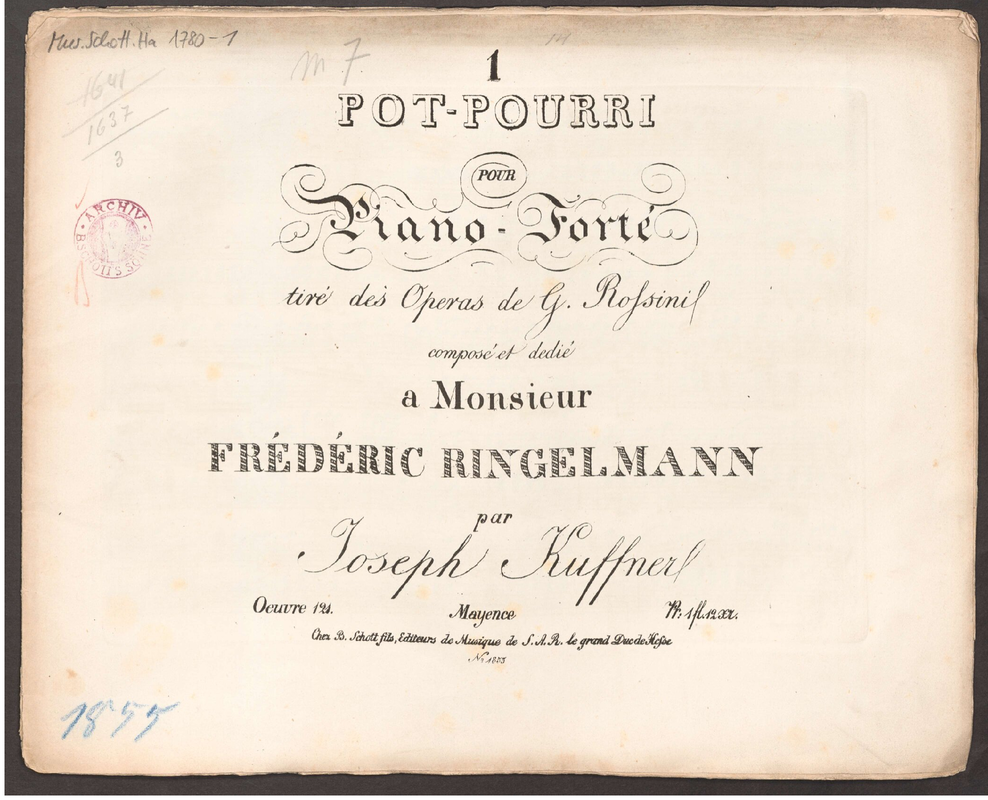 Mus.Schott.Ha 1780-1
m 7
1641
1637
3
1
POT-POURRI
POUR
Piano-Forté
tiré des Operas de G. Roſsini
composé et dedié
a Monsieur
FRÉDÉRIC RINGELMANN
par
Joseph Kuffner
ARCHIV
B.SCHOTT'S SÖHNE
Oeuvre 121. Mayence Pr: 1 fl. 12 xr.
Chez B. Schott fils, Editeurs de Musique de S. A. R. le grand Duc de Heſse
1855